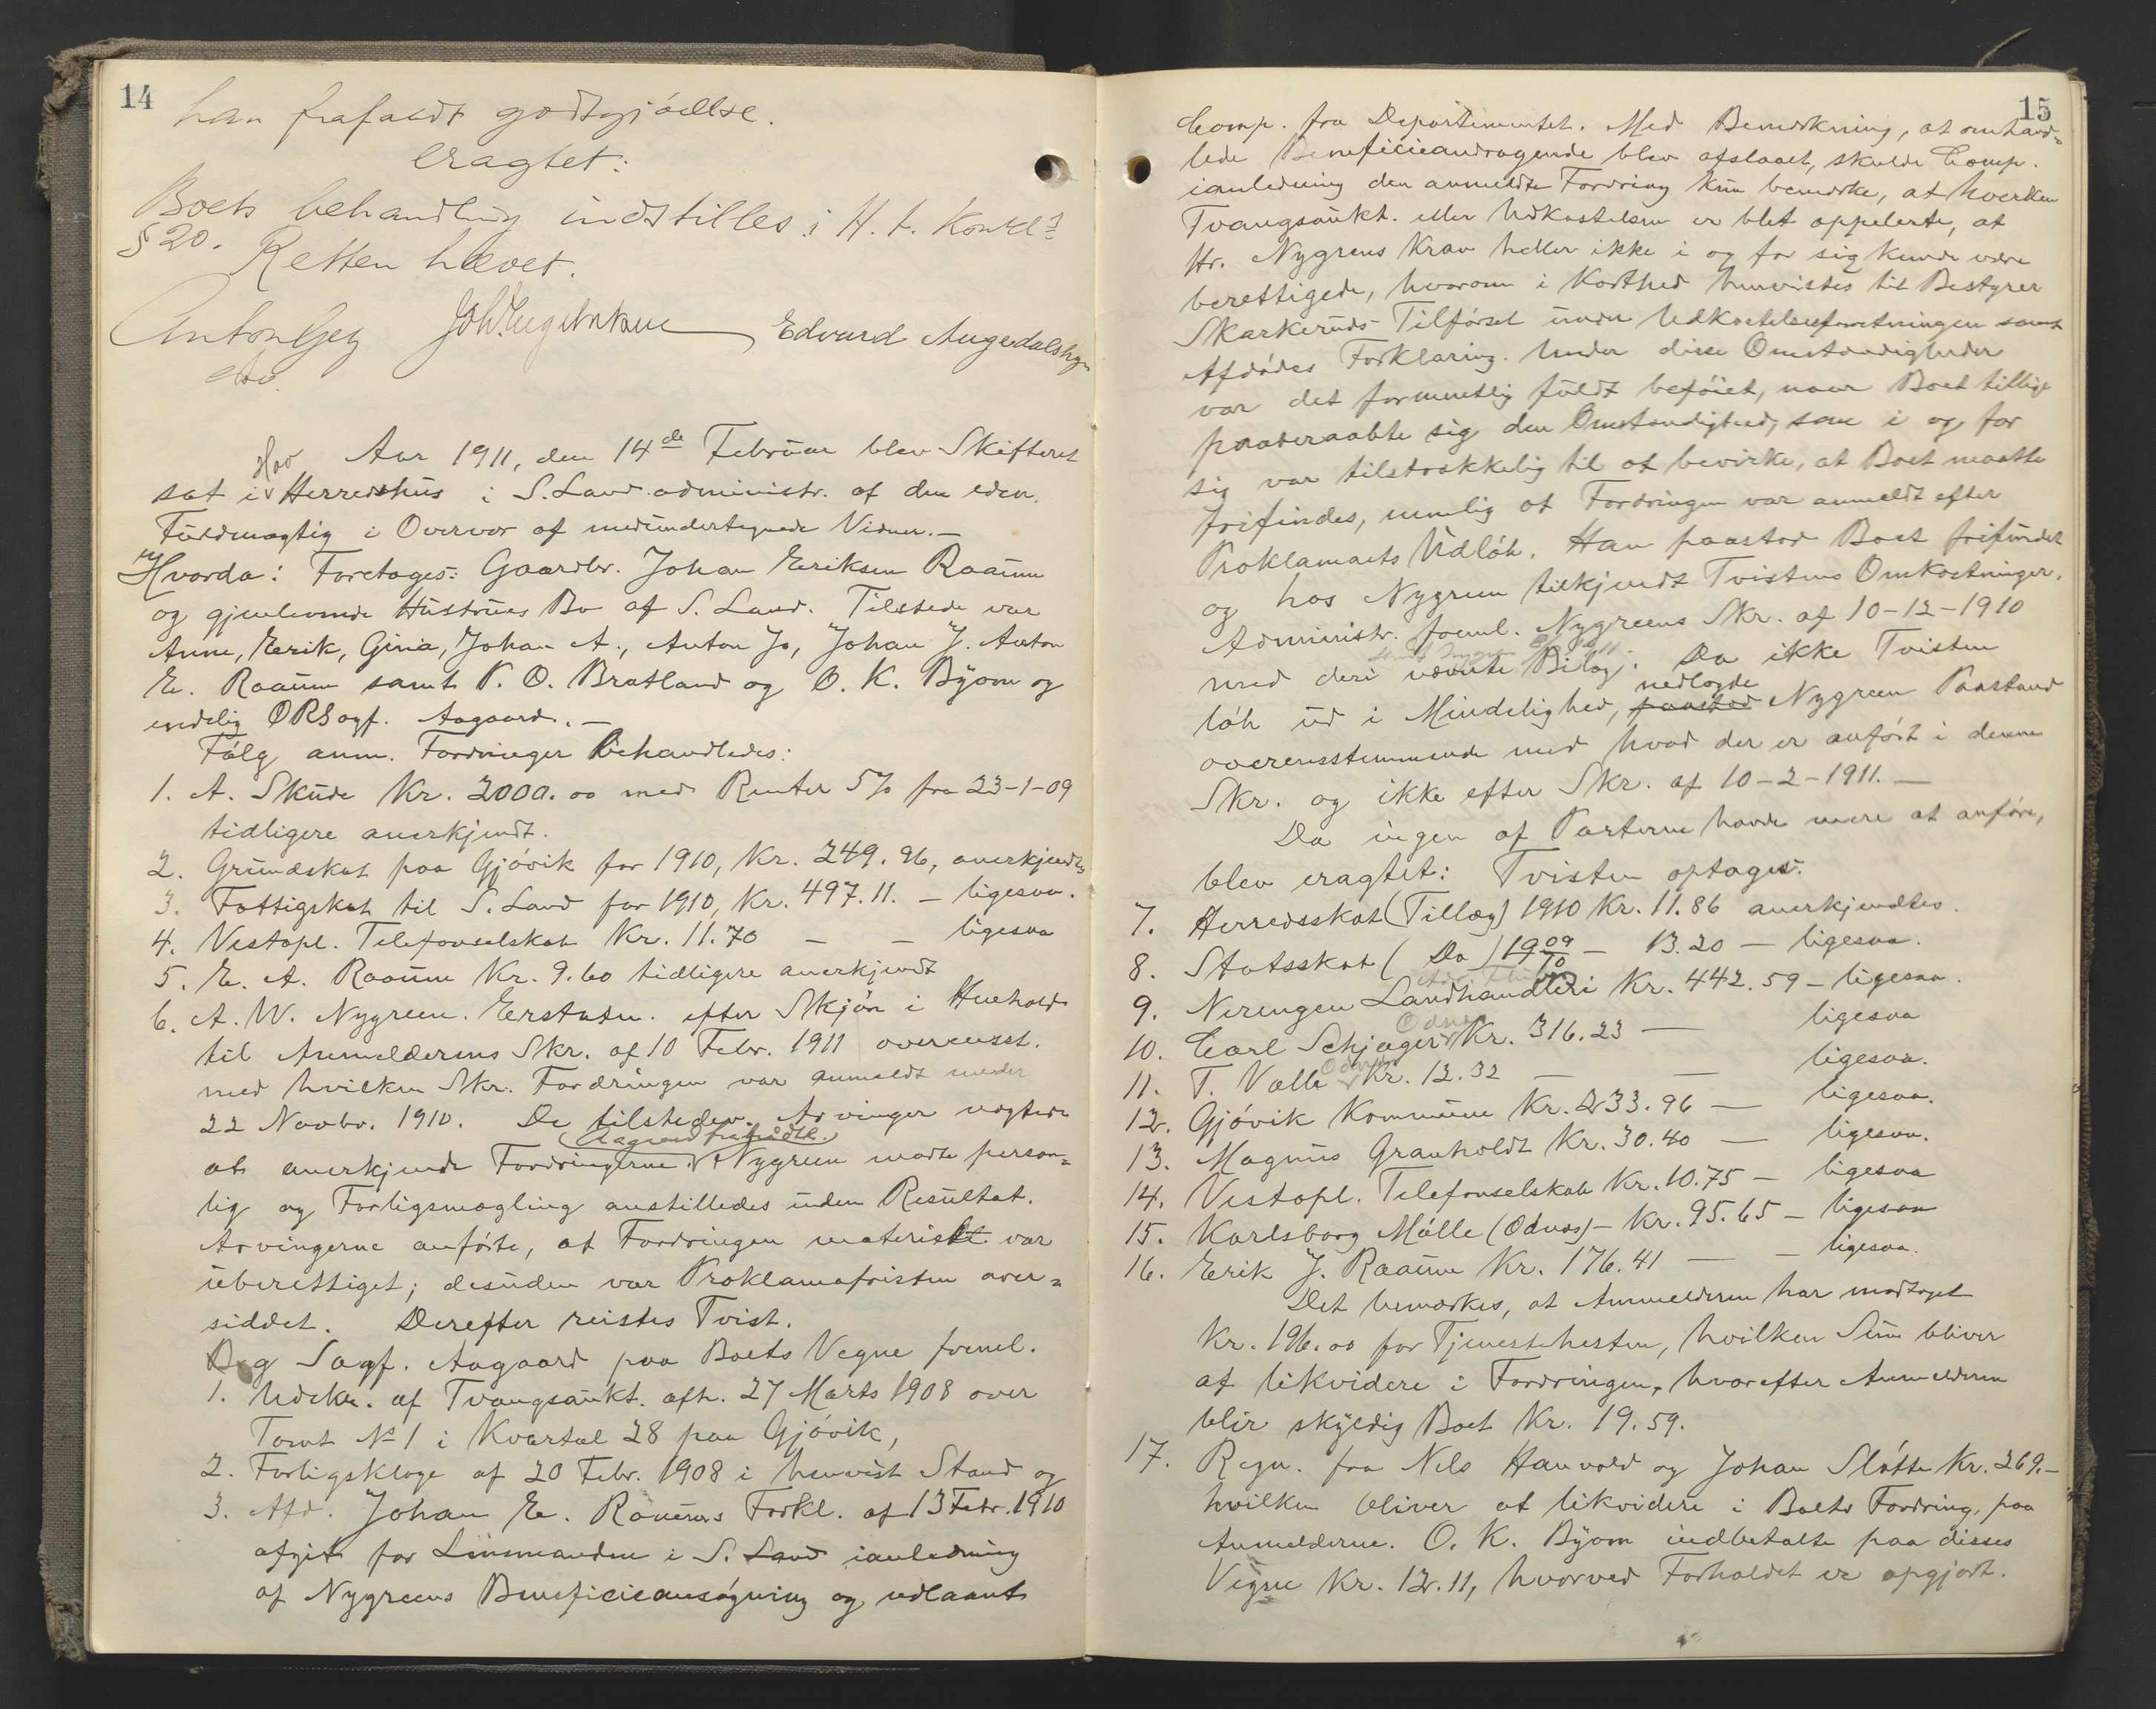 14
han frafaldt godtgjöelse.
eragtet:
Boets behandling indstilles i H. t. Konkl.
§ 20. Retten hævet.
Edvard Augedalshgn
Aar 1911, den 14de Februar blev Skifteret
sat i Hov Herredshus i S. Land administr. af den edsv.
Fuldmægtig i Overvær af medundertegnede Vidner. —
Hvorda: Foretoges: Gaardbr. Johan Eriksen Raaum
og gjenlevende Hustrues Bo af S. Land. Tilstede var
Anne, Erik, Gina, Johan A., Anton Jo, Johan J. Anton
E. Raaum samt P. O. Bratland og O. K. Byom og
endelig ORSagf. Aagaard. —
Fölg. anm. Fordringer behandledes:
1. A. Skude Kr. 2000.00 med Renter 5% fra 23-1-09
tidligere anerkjendt.
2. Grundskat paa Gjövik for 1910, Kr. 249.96, anerkjendtes
3. Fattigskat til S. Land for 1910, Kr. 497.11. — ligesaa.
4. Vestopl. Telefonselskab Kr. 11.70 — — ligesaa
5. E. A. Raaum Kr. 9.60 tidligere anerkjendt
6. A. W. Nygreen. Erstatn. efter Skjön i Henhold
til Anmelderens Skr. af 10 Febr. 1911 overensst.
med hvilken Skr. Fordringen var anmeldt under
22 Novbr. 1910. De tilstedev. Arvinger nægtede
at anerkjende Fordringerne. (Aagaard fratraadte.) Nygreen mødte person=
lig og Forligsmægling anstilledes uden Resultat.
Arvingerne anförte, at Fordringen materielt var
uberettiget; desuden var Proklamafristen over=
siddet. Derefter reistes Tvist.
Sagf. Aagaard paa Boets Vegne freml.
1. Udskr. af Tvangsaukt. afh. 27 Marts 1908 over
Tomt No 1 i Kvartal 28 paa Gjövik,
2. Forligsklage af 20 Febr. 1908 i henvist Stand og
3. Afd. Johan E. Raaums Forkl. af 13 Febr. 1910
afgit for Lensmanden i S. Land ianledning
af Nygreens Beneficieansögning og udlaant
15
Comp. fra Departementet. Med Bemærkning, at omhand=
lede Beneficieandragende blev afslaaet, skulde Comp.
ianledning den anmeldte Fordring kun bemærke, at hverken
Tvangsaukt. eller Udkastelsen er blet appelerte, at
Hr. Nygrens Krav heller ikke i og for sig kunde være
berettigede, hvorom i Korthed henvistes til Bestyrer
Skarkeruds Tilförsel under Udkastelsesforretningen samt
Afdödes Forklaring. Under disse Omstændigheder
var det formentlig fuldt beföiet, naar Boet tillige
paaberaabte sig den Omstændighed, som i og for
sig var tilstrækkelig til at bevirke, at Boet maatte
frifindes, nemlig at Fordringen var anmeldt efter
Proklamaets Udlöb. Han paastod Boet frifundet
og hos Nygreen tilkjendt Tvistens Omkostninger.
Administr. freml. Nygreens Skr. af 10-12-1910
med deri nævnte Bilag. Da ikke Tvisten
löb ud i Mindelighed, paastod nedlagde Nygreen Paastand
overensstemmende med hvad der er anfört i denne
Skr. og ikke efter Skr. af 10-2-1911. —
Da ingen af Parterne havde mere at anföre,
blev eragtet: Tvisten optages.
7. Herredsskat (Tillæg) 1910 Kr. 11.86 anerkjendtes.
8. Statsskat ( Do ) 1909/10 — 13.20 — ligesaa.
9. Neringen Landhandleri Kr. 442.59 — ligesaa.
10. Carl Schjager Odnæs Kr. 316.23 — ligesaa
11. T. Valle Odnæs Kr. 12.32 — — ligesaa.
12. Gjövik Kommune Kr. 233.96 — ligesaa.
13. Magnus Granholdt Kr. 30.40 — ligesaa.
14. Vestopl. Telefonselskab Kr. 10.75 — ligesaa
15. Karlsborg Mölle (Odnæs) — Kr. 95.65 — ligesaa
16. Erik J. Raaum Kr. 176.41 — — ligesaa.
Det bemærkes, at Anmelderen har modtaget
Kr. 196.00 for Tjenestehesten, hvilken Sum bliver
at likvidere i Fordringen, hvorefter Anmelderen
blir skyldig Boet Kr. 19.59.
17. Regn. fra Nels Hanvold og Johan Slötte Kr. 269.—
hvilken bliver at likvidere i Boets Fordring paa
Anmelderne. O. K. Byom indbetalte paa disses
Vegne Kr. 12.11, hvorved Forholdet er opgjort.